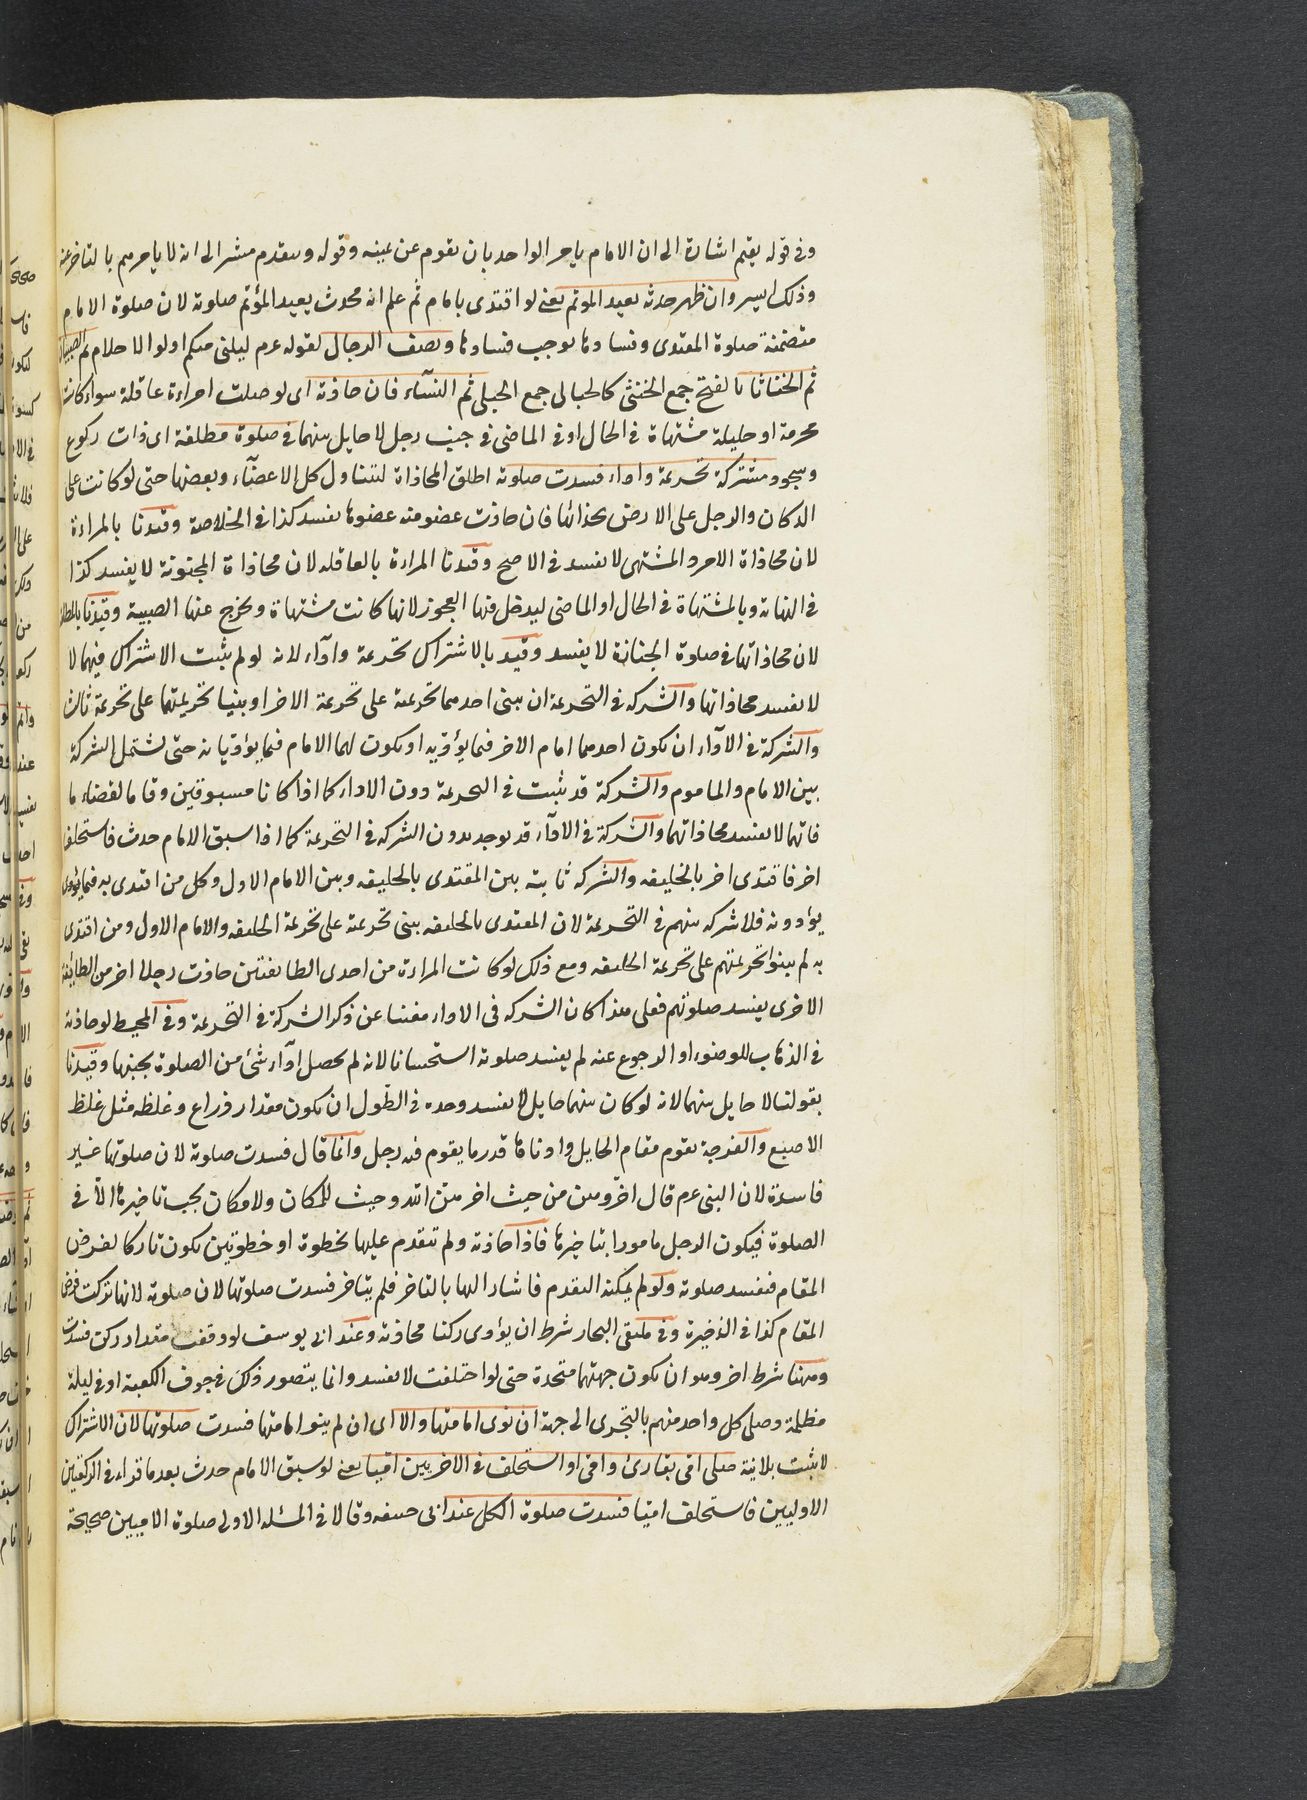 وفى قوله يقيم اشارة الى ان الامام يامر الواحد بان يقوم عن يمينه وقوله ويتقدم مشير الى انه لا يامرهم بالتاخر عنه
وذلك ايسر وان ظهر حدثه يعيد المؤتم يعنى لو اقتدى بامام ثم علم انه محدث يعيد المؤتم صلوته لان صلوة الامام
متضمنة صلوة المقتدى وفسادها يوجب فسادها ويصف الرجال لقوله عم ليلنى منكم اولوا الاحلام ثم الصبيان
ثم الخناثا بالفتح جمع الخنثى كالحبالى جمع الحبلى ثم النسآء فان حاذته اى لو صلت امراءة عاقلة سواء كانت
محرمة او حليلة مشتهاة فى الحال او فى الماضى فى جنب رجل لا حايل بينهما فى صلوة مطلقة اى ذات ركوع
وسجود مشتركة تحريمة واداء فسدت صلوته اطلق المحاذاة لتتناول كل الاعضآء وبعضها حتى لو كانت على
الدكان والرجل على الارض بحذائها فان حاذت عضو منه عضوها يفسد كذا فى الخلاصة وقيدنا بالمراءة
لان محاذاة الامرد المشتهى لا يفسد فى الاصح وقيدنا المراءة بالعاقله لان محاذاة المجنونة لا يفسد كذا
فى النهاية وبالمشتهاة فى الحال او الماضى ليدخل فيها العجوز لانها كانت مشتهاة ويخرج عنها الصبية وقيدنا بالمطلقة
لان محاذاتها فى صلوة الجنازة لا يفسد وقيد بالاشتراك تحريمة وادآء لانه لو لم يثبت الاشتراك فيهما لا
لا يفسد محاذاتها والشركه فى التحريمة ان يبنى احدهما تحريمته على تحريمة الاخر او يبنيا تحريمتهما على تحريمة ثالث
والشركة فى الادآء ان يكون احدهما امام الاخر فيما يؤديه او يكون لهما الامام فيما يؤديانه حتى يشتمل الشركة
بين الامام والماموم والشركة قد تثبت فى التحريمة دون الاداء كما اذا كانا مسبوقين وقاما لقضاء ما
فاتهما لا يفسد محاذاتهما والشركة فى الادآء قد يوجد بدون الشركه فى التحريمة كما اذا سبق الامام حدث فاستخلف
اخر فاقتدى اخر بالخليفه والشركه ثابته بين المقتدى بالخليفه وبين الامام الاول وكل من اقتدى به فيما يؤدى
يؤدونه فلا شركه بينهم فى التحريمة لان المقتدى بالخليفه يبنى تحريمة على تحريمة الخليفه والامام الاول ومن اقتدى
به لم يبنوا تحريمتهم على تحريمة الخليفه ومع ذلك لو كانت المراءة من احدى الطائفتين حاذت رجلا اخر من الطائفة
الاخرى يفسد صلوتهم فعلى هذا كان الشركه فى الاداء مغنيا عن ذكر الشركة فى التحريمة وفى المحيط لو حاذته
فى الذهاب للوضوء او الرجوع عنه لم يفسد صلوته استحسانا لانه لم يحصل ادآء شئ من الصلوة بجنبها وقيدنا
بقولنا لا حايل بينهما لانه لو كان بينهما حايل لا يفسد وحده فى الطول ان يكون مقدار ذراع وغلظه مثل غلظ
الاصبع والفرجة يقوم مقام الحايل وادناها قدر ما يقوم فيه رجل وانما قال فسدت صلوته لان صلوتها غير
فاسدة لان النبى عم قال اخروهن من حيث اخرهن الله وحيث للمكان ولا مكان يجب تاخيرها الا فى
الصلوة فيكون الرجل مامورا بتاخيرها فاذا حاذته ولم تتقدم عليها بخطوة او خطوتين يكون تاركا لفرض
المقام فيفسد صلوته ولو لم يمكنه التقدم فاشار اليها بالتاخر فلم يتاخر فسدت صلوتها لان صلوته لانها تركت فرض
المقام كذا فى الذخيرة وفى ملتقى البحار شرط ان يؤدى ركنا محاذته وعند ابى يوسف لو وقفت مقدار ركن فسدت
وههنا شرط اخر وهو ان يكون جهتهما متحدة حتى لو اختلفت لا يفسد وانما يتصور ذلك فى جوف الكعبة او فى ليلة
مظلمة وصلى كل واحد منهم بالتحرى الى جهة ان نوى امامتها والا اى ان لم ينو امامتها فسدت صلوتها لان الاشتراك
لا يثبت بلا نية صلى امى بقارئ وامى او استخلف فى الاخريين اميا يعنى لو سبق الامام حدث بعد ما قراء فى الركعتين
الاوليين فاستخلف اميا فسدت صلوة الكل عند ابى حنيفه وقالا فى المسئله الاولى صلوة الاميين صحيحة